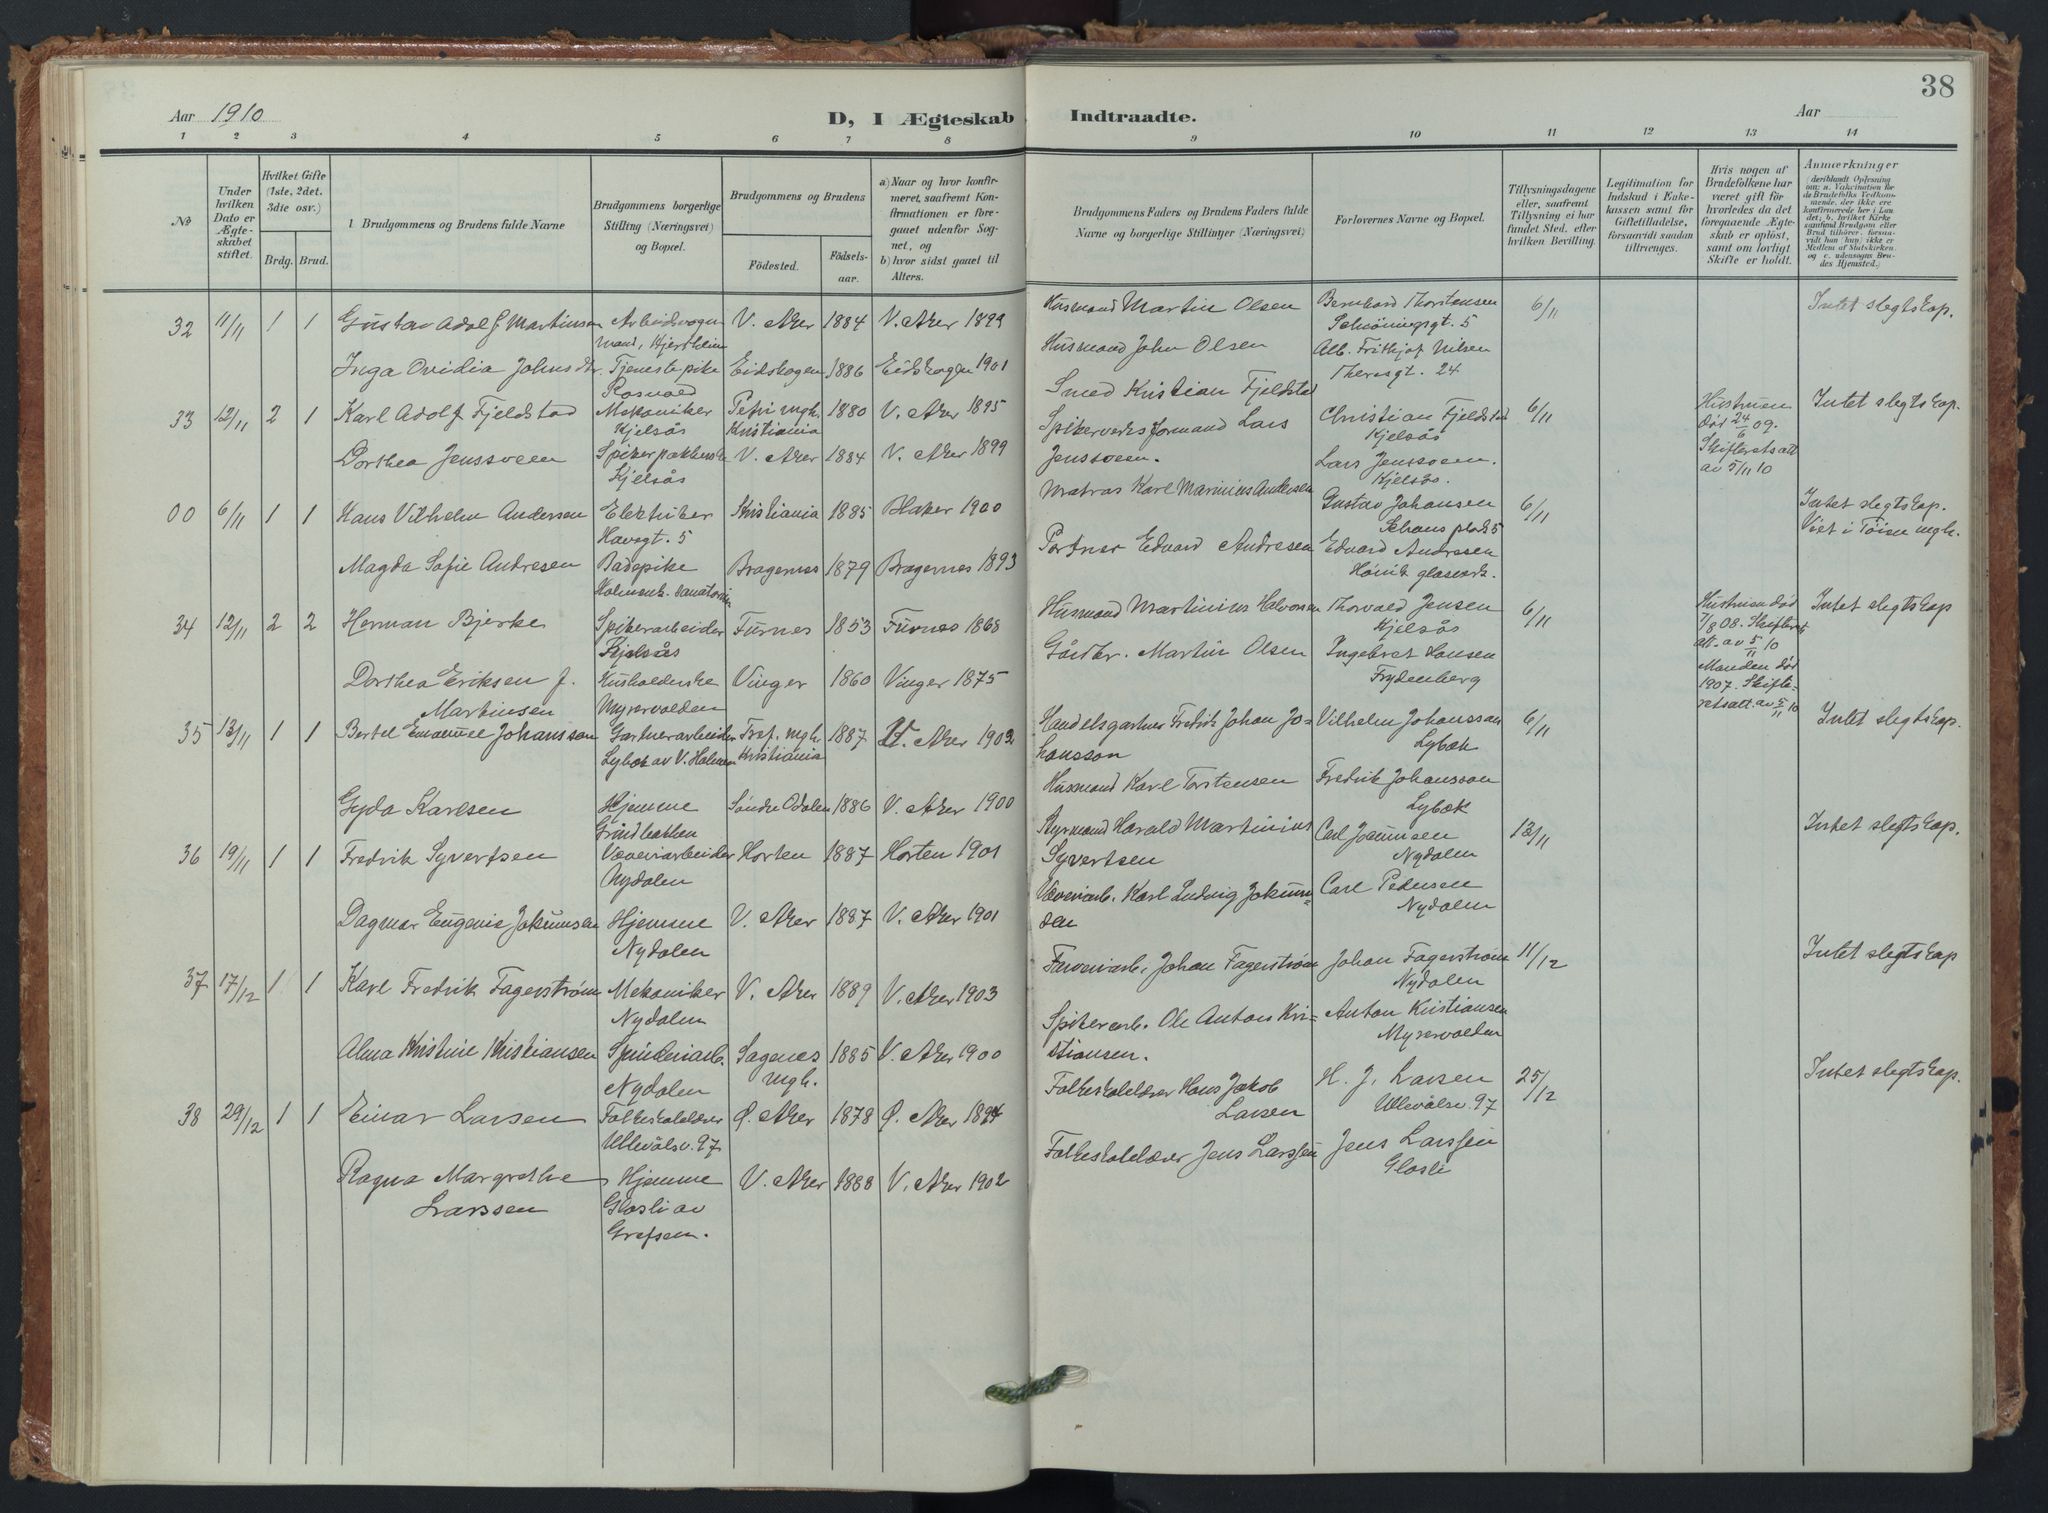 38
Aar 1910
D, I Ægteskab Indtraadte.
Aar
1 2 3 4 5 6 7 8 9 10 11 12 13 14
No
Under hvilken Dato er Ægteskabet stiftet.
Hvilket Gifte (1ste, 2det. 3die osv.)
Brdg. Brud.
1 Brudgommens og Brudens fulde Navne
Brudgommens borgerlige Stilling (Næringsvei) og Bopæl.
Brudgommens og Brudens
Fødested. Fødselsaar.
a) Naar og hvor konfirmeret, saafremt Konfirmationen er foregaaet udenfor Sognet, og
b) hvor sidst gaaet til Alters.
Brudgommens Faders og Brudens Faders fulde Navne og borgerlige Stillinger (Næringsvei)
Forlovernes Navne og Bopæl.
Tillysningsdagene eller, saafremt Tillysning ei har fundet Sted, efter hvilken Bevilling.
Legitimation for Indskud i Enkekassen samt for Giftetilladelse, forsaavidt saadan tiltrenges.
Hvis nogen af Brudefolkene har været gift før hvorledes da det foregaaende Ægteskab er opløst, samt om lovligt Skifte er holdt.
Anmærkninger (deriblandt Oplysning om: a. Vakcination for de Brudefolks Vedkommende, der ikke ere konfirmerede her i Landet; b. hvilket Kirkesamfund Brudgom eller Brud tilhører, forsaavidt han (hun) ikke er Medlem af Statskirken, og c. udensogns Brudes Hjemsted.)
32 11/11 1 1 Gustav Adolf Martinsen Arbeidsvognmand, V. Aker 1884 V. Aker 1899
Husmand Martin Olsen Bernhard Thorstensen Schøningsgt. 5 6/11 Intet slegtskap.
Inga Ovidia Johnsdtr. Tjenestepike Eidskogen 1886 Eidskogen 1901
Husmand John Olsen Alb. Frithjof Nilsen Theresgt. 24
33 12/11 2 1 Karl Adolf Fjeldstad Mekaniker Kjelsås Petri mgh. Kristiania 1880 V. Aker 1895
Smed Kristian Fjeldstad Christian Fjeldstad Kjelsås 6/11 Hustruen død 24/6 09. Skifteretsatt av 5/11 10 Intet slegtskap.
Dorthea Jenssveen Spikerpakkerske Kjelsås V. Aker 1884 V. Aker 1899
Spikerverksformand Lars Jenssveen. Lars Jenssveen. Kjelsås.
00 6/11 1 1 Hans Vilhelm Andersen Elektriker Havegt. 5 Kristiania 1885 Blaker 1900
Matros Karl Marinius Andersen Gustav Johansen Schous plads 5 6/11 Intet slegtskap. Viet i Tøien mgh.
Magda Sofie Andresen Badepike Holmenk. sanatorium Bragernes 1879 Bragernes 1893
Portner Edvard Andresen Edvard Andresen Høvik glasverk.
34 12/11 2 2 Herman Bjerke Spikerarbeider Kjelsås Furnes 1853 Furnes 1868
Husmand Martinius Halvorsen Thorvald Jensen Kjelsås 6/11 Hustruen død 7/8 08. Skifteretsatt. av 5/11 10 Intet slegtskap
Dorthea Eriksen f. Martinsen Husholderske Myrervolden Vinger 1860 Vinger 1875
Gårdbr. Martin Olsen Ingebret Hansen Frydenberg Manden død 1907. Skifteretsatt. av 5/11 10
35 13/11 1 1 Bertel Emanuel Johansson Gartnerarbeider Lybæk av V. Holmen Tref. mgh. Kristiania 1887 V. Aker 1902
Handelsgartner Fredrik Johan Johansson Vilhelm Johansson Lybæk 6/11 Intet slegtskap.
Gyda Karlsen Hjemme Grindbakken Søndre Odalen 1886 V. Aker 1900
Husmand Karl Torstensen Fredrik Johansson Lybæk
36 19/11 1 1 Fredrik Syvertsen Væveriarbeider Nydalen Horten 1887 Horten 1901
Styrmand Harald Martinius Syvertsen Carl Nydalen 13/11 Intet slegtskap.
Dagmar Eugenie Jokumsen Hjemme Nydalen V. Aker 1887 V. Aker 1901
Væveriarb. Karl Ludvig Jokumsen Carl Pedersen Nydalen
37 17/12 1 1 Karl Fredrik Fagerstrøm Mekaniker Nydalen V. Aker 1889 V. Aker 1903
Farveriarb. Johan Fagerstrøm Johan Fagerstrøm Nydalen 11/12 Intet slegtskap
Alma Kristine Kristiansen Spinderiarb. Nydalen Sagenes mgh. 1885 V. Aker 1900
Spikerarb. Ole Anton Kristiansen. Anton Kristiansen Myrervolden
38 29/12 1 1 Einar Larsen Folkeskolelærer Ullevålsv. 97 Ø. Aker 1878 Ø. Aker 1894
Folkeskolelærer Hans Jakob Larsen H. J. Larsen Ullevålsv. 97 25/12 Intet slegtskap.
Ragna Margrethe Larssen Hjemme Glasli av Grefsen. V. Aker 1888 V. Aker 1902
Folkeskolelærer Jens Larssen Jens Larssen Glasli